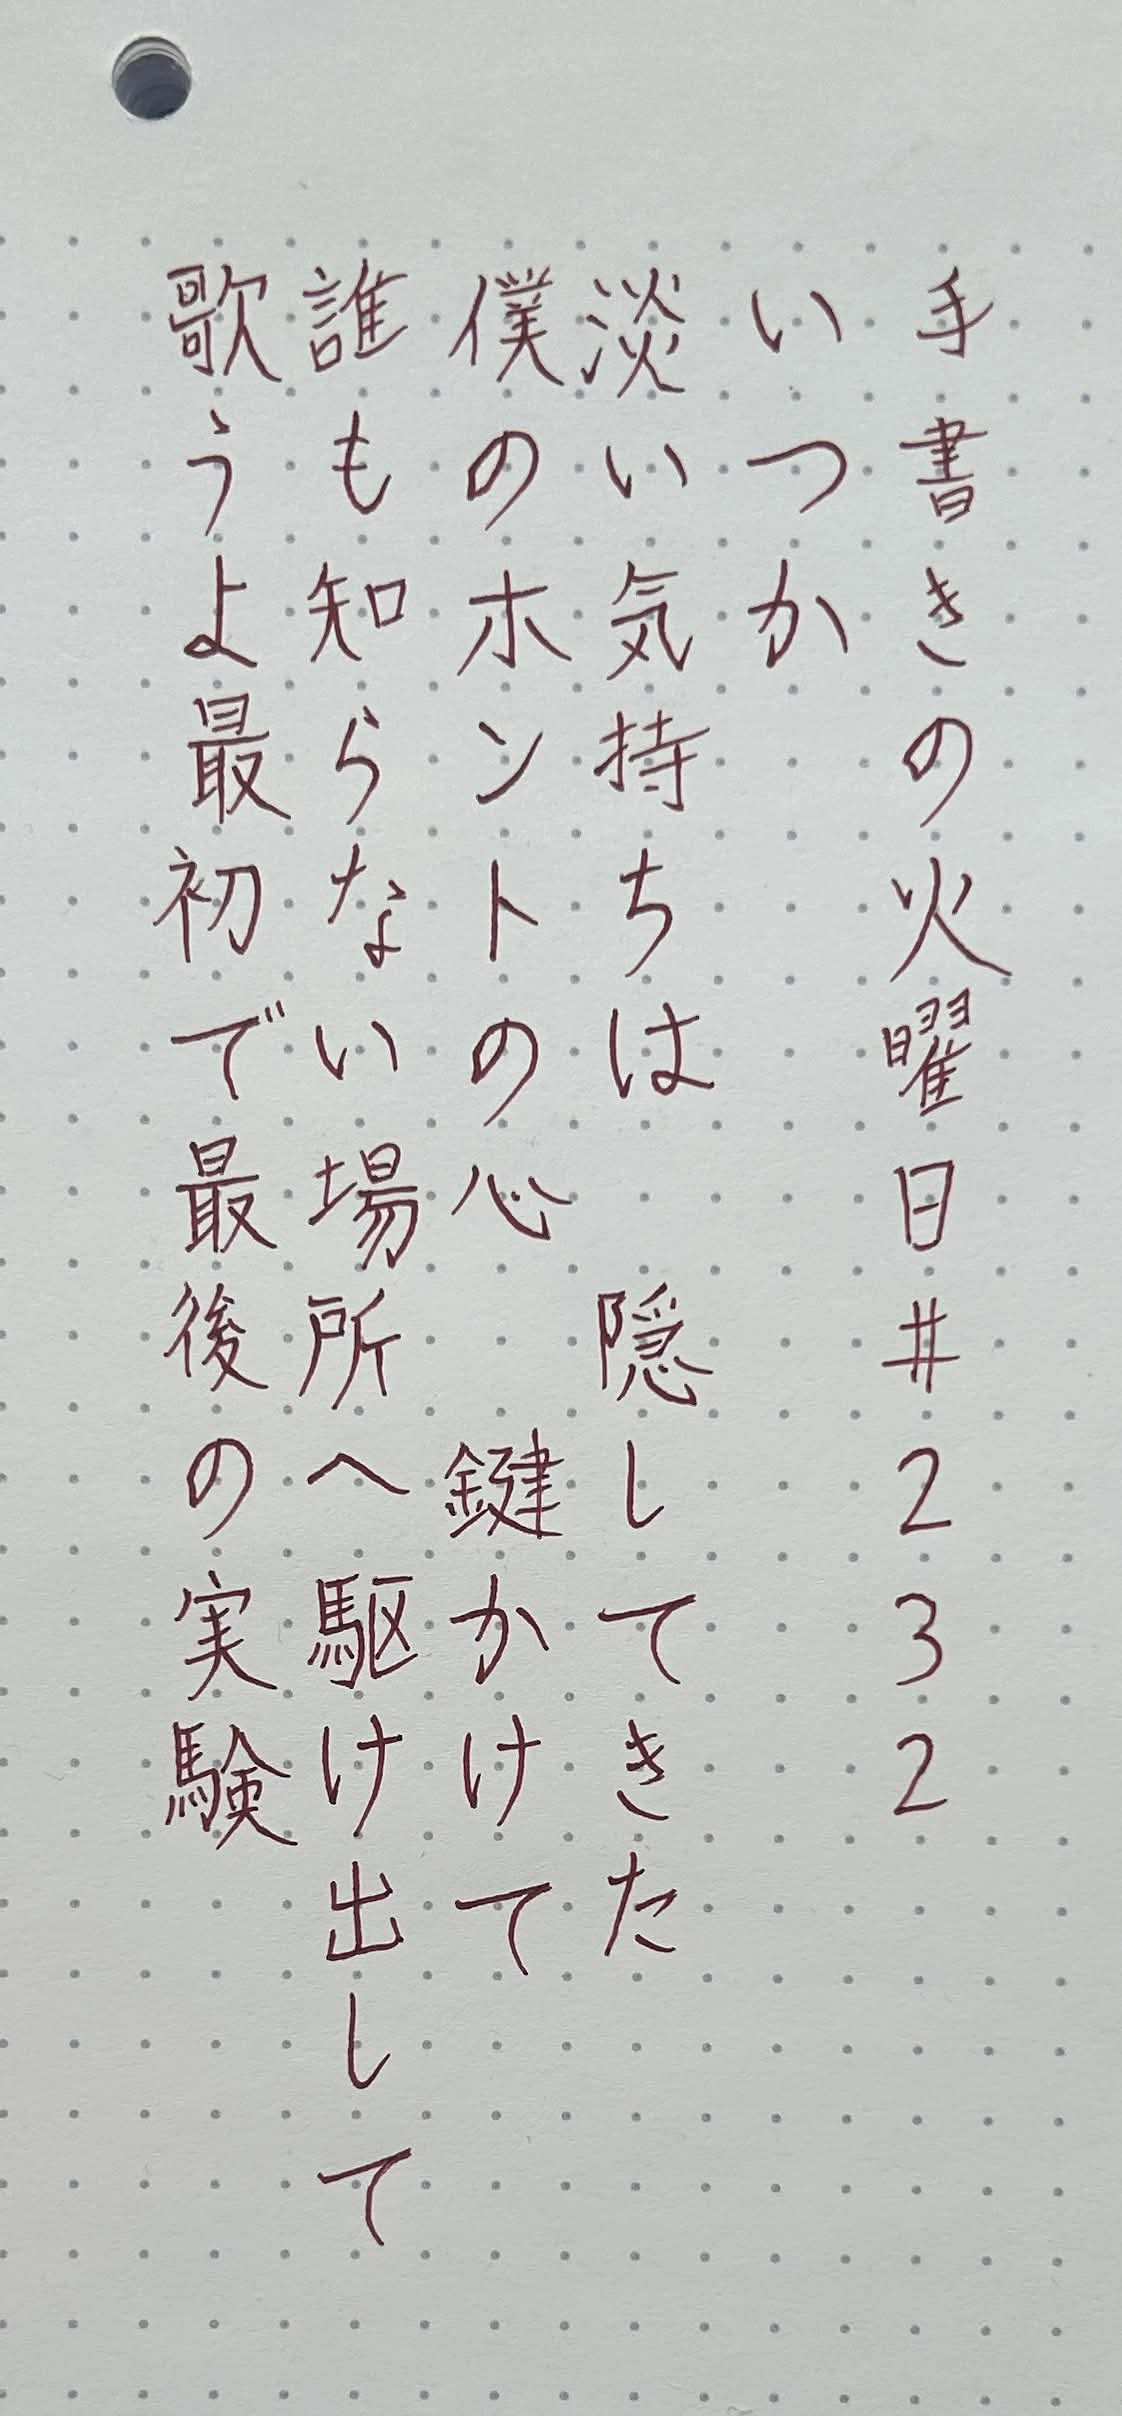 手書きの火曜日#232
いつか
淡い気持ちは　隠してきた
僕のホントの心　鍵かけて
誰も知らない場所へ駆け出して
歌うよ最初で最後の実験